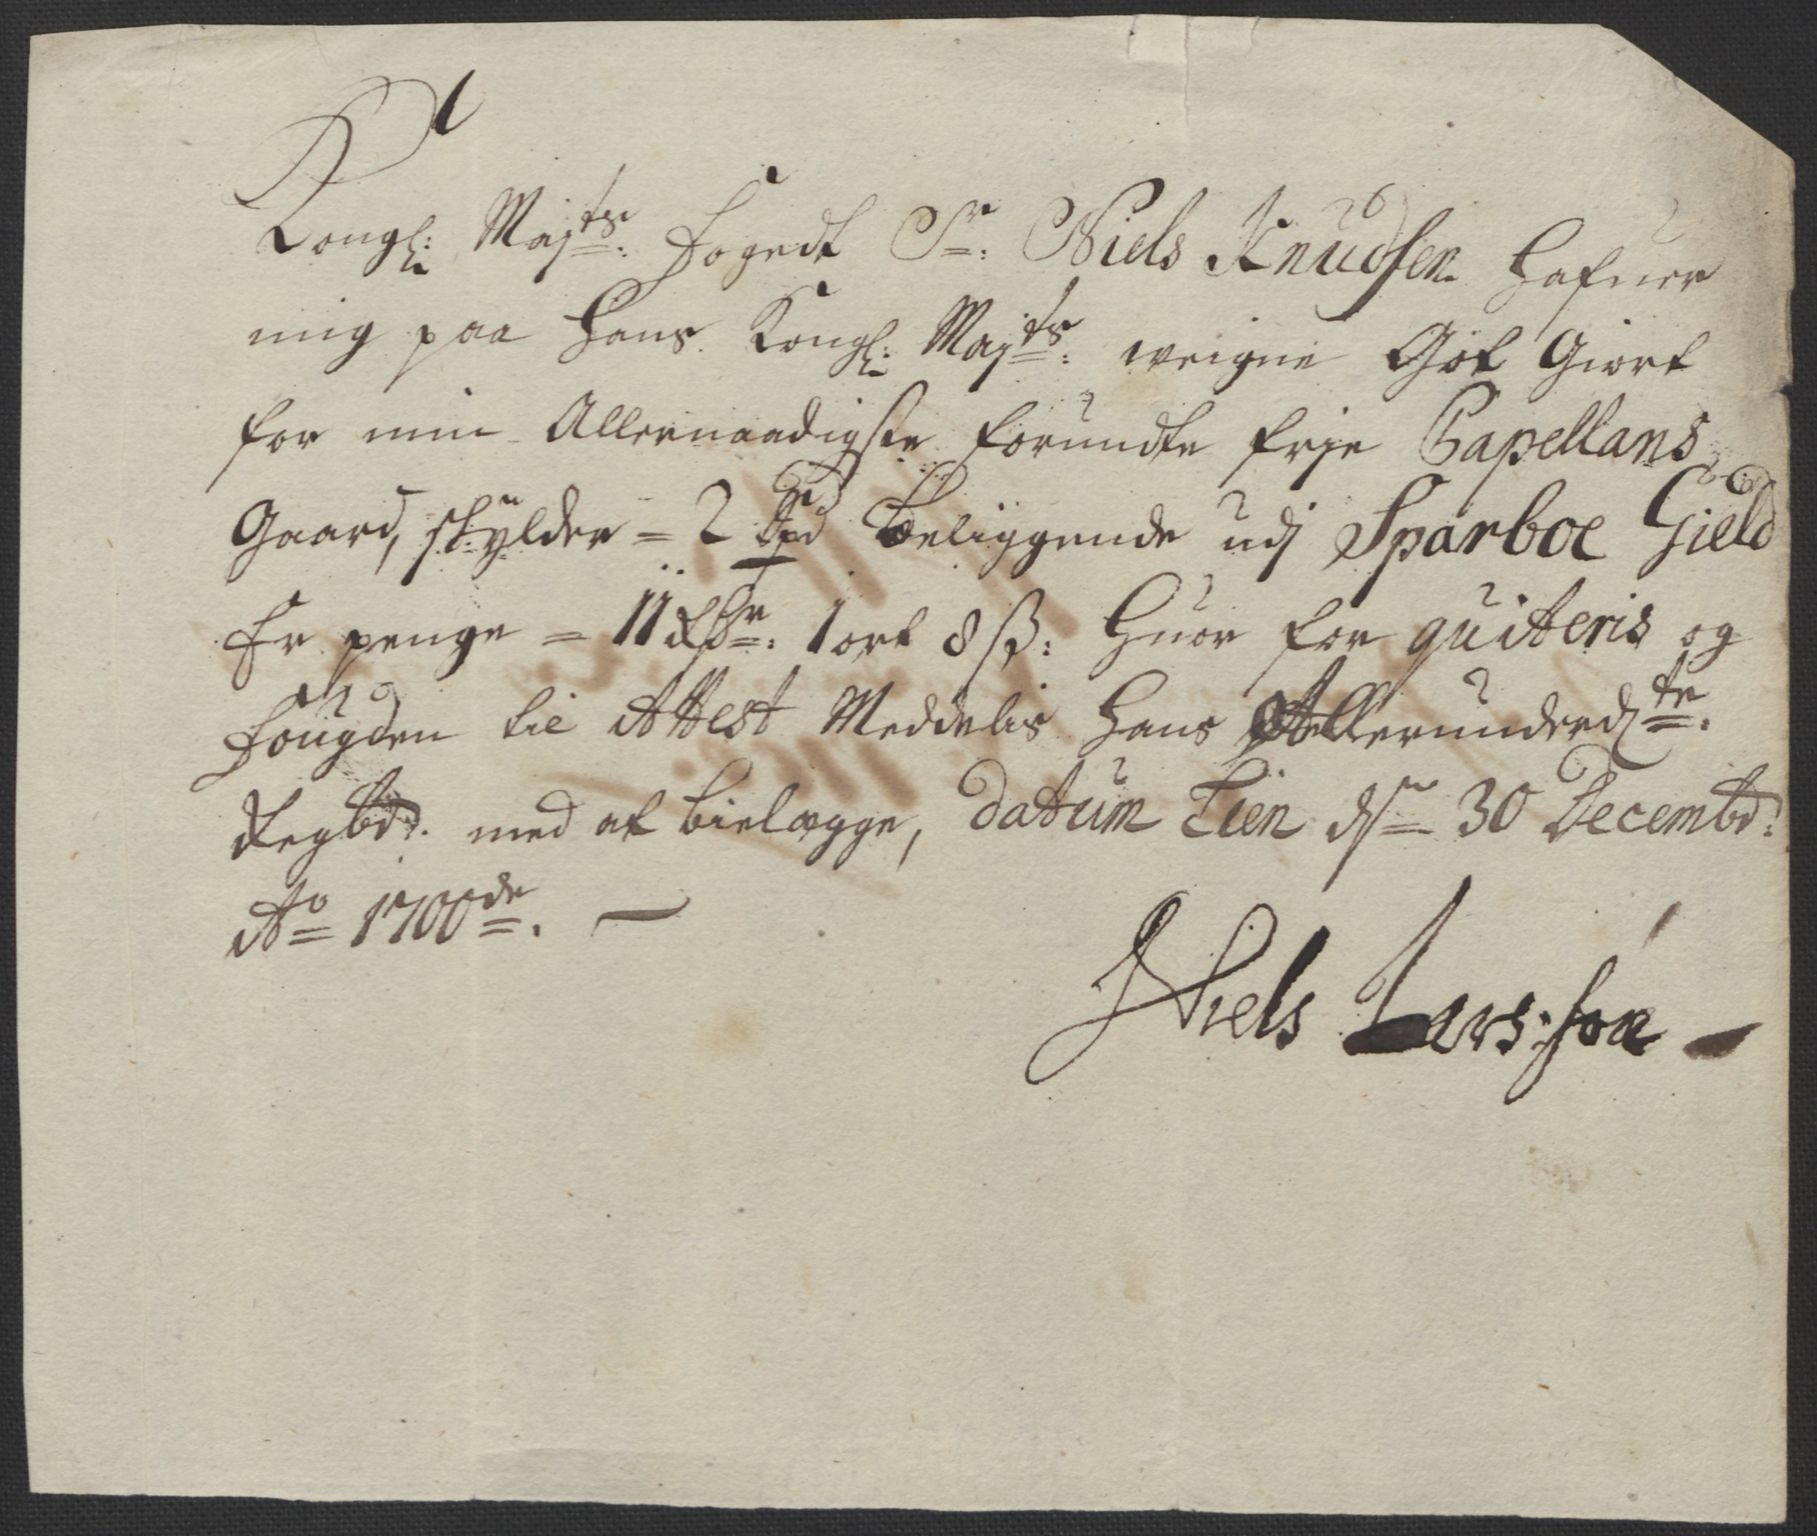 Kongl: Majts: Fogedt Sr: Niels Knudsen hafuer
mig paa hans Kongl: Majts: weigne Got Giort
for min Allernaadigste forundte frje Capellans
Gaard, skylder = 2 Spd beliggende udj Sparboe Gield
Er penge = 11 Rdr: 1 ort 8 ß: Huor for quiteris og
Fougden til Attest Meddelis hans Allerunderdte:
Regbd: med at bielegge, datum Lien ds 30 Decembr:
Ao 1700de. —
Niels Lars:søn —